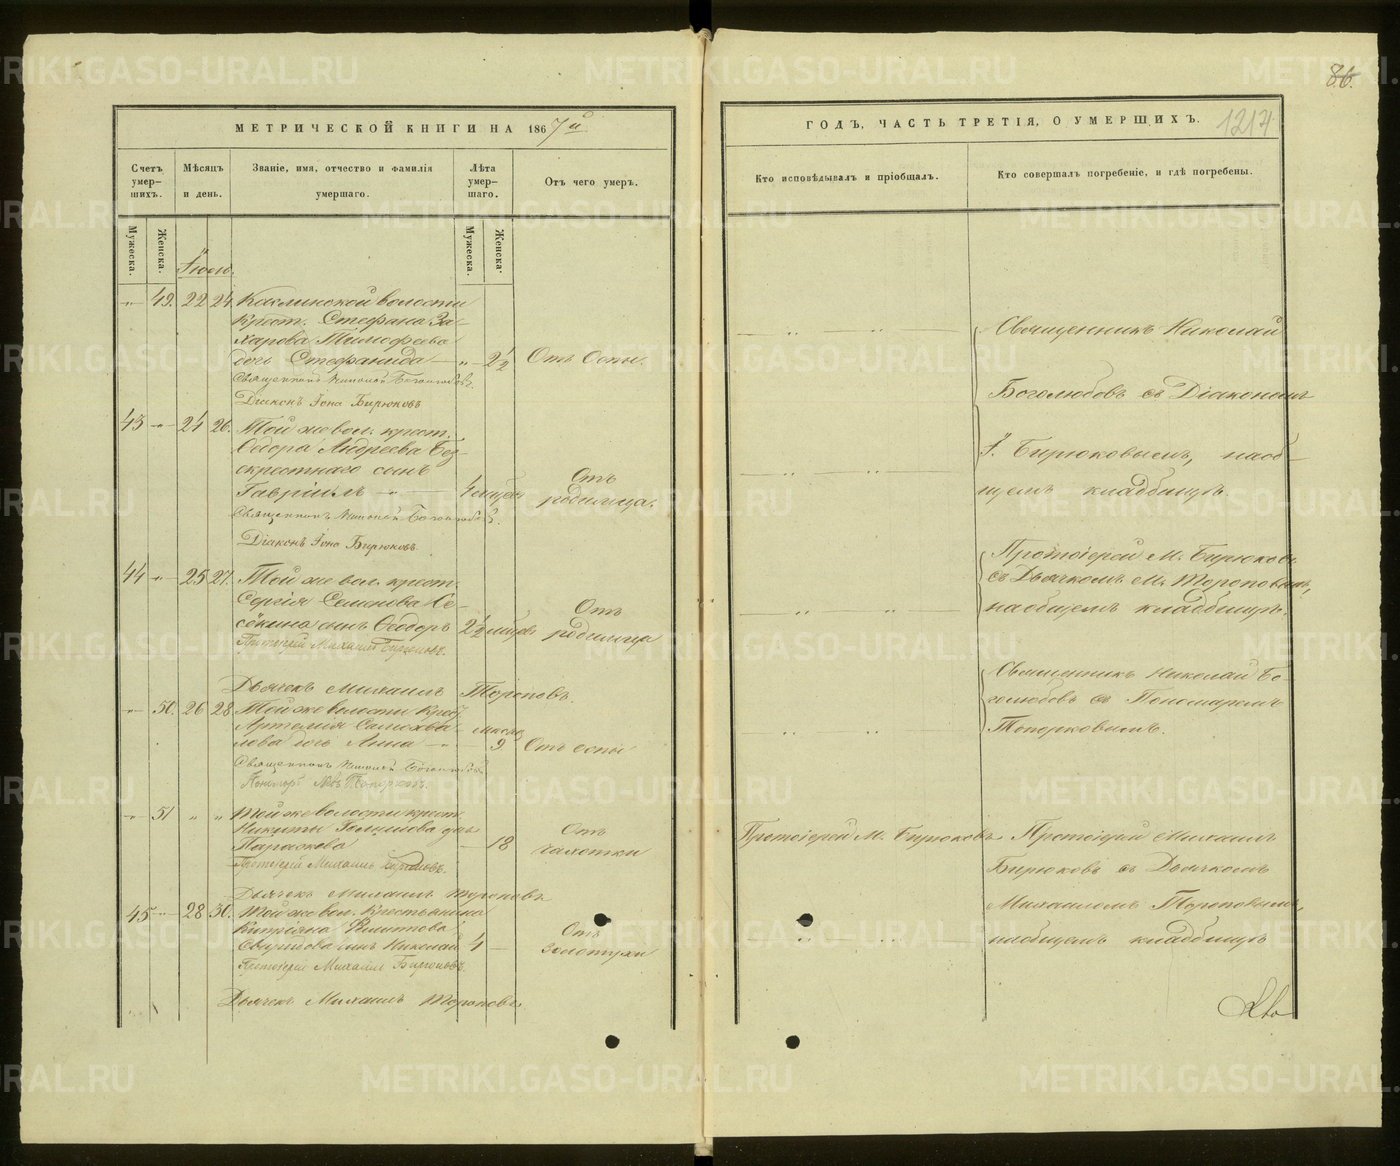 МЕТРИЧЕСКОЙ КНИГИ НА 1867й
Счетъ умер-шихъ.
Мѣсяцъ и день.
Званіе, имя, отчество и фамилія умершаго.
Лѣта умер-шаго.
Отъ чего умеръ.
Мужеска.
Женска.
Мужеска.
Женска.
Іюль.
„ 49. 22 24. Каслинской волости
крест. Стефана За-
харова Тимофеева
дочь Стефанида „ 2½ Отъ Оспы.
Священникъ Николай Боголюбовъ.
Діаконъ Іона Бирюковъ
43 „ 24 26. Той же вол. крест.
Ѳедора Андреева Без-
скрестнаго сынъ
Гавріилъ 4 мѣсяц. Отъ родимца.
Священникъ Николай Боголюбовъ.
Діаконъ Іона Бирюковъ.
44 „ 25 27. Той же вол. крест.
Сергія Семенова
сынъ Ѳеодоръ 2½ мѣсяц. Отъ родимца
Протоіерей Михаилъ Бирюковъ.
Дьячекъ Михаилъ Тороповъ.
„ 50. 26 28 Той же волости крес.
Артемія
дочь Анна 9. Отъ оспы
Священникъ Николай Боголюбовъ
Пономарь Топорковъ.
„ 51 „ „ Той же волости крест.
Никиты дчь
Параскова 18 Отъ чахотки
Протоіерей Михаилъ Бирюковъ.
Дьячекъ Михаилъ Тороповъ
45 „ 28 30. Той же вол. Крестьянина
сынъ Николай 4 Отъ Золотухи
Протоіерей Михаилъ Бирюковъ.
Дьячекъ Михаилъ Тороповъ.
86.
ГОДЪ, ЧАСТЬ ТРЕТІЯ, О УМЕРШИХЪ.
1217
Кто исповѣдывалъ и пріобщалъ.
Кто совершалъ погребеніе, и гдѣ погребены.
Священникъ Николай
Боголюбовъ съ Діакономъ
І. Бирюковымъ, на об-
щемъ кладбищѣ.
Протоіерей М. Бирюковъ
съ Дьячкомъ М. Тороповымъ,
на общемъ кладбищѣ.
Священникъ Николай Бо-
голюбовъ съ Пономаремъ
Топорковымъ.
Протоіерей М. Бирюковъ
Протоіерей Михаилъ
Бирюковъ съ Дьячкомъ
Михаиломъ Тороповымъ,
на общемъ кладбищѣ
METRIKI.GASO-URAL.RU